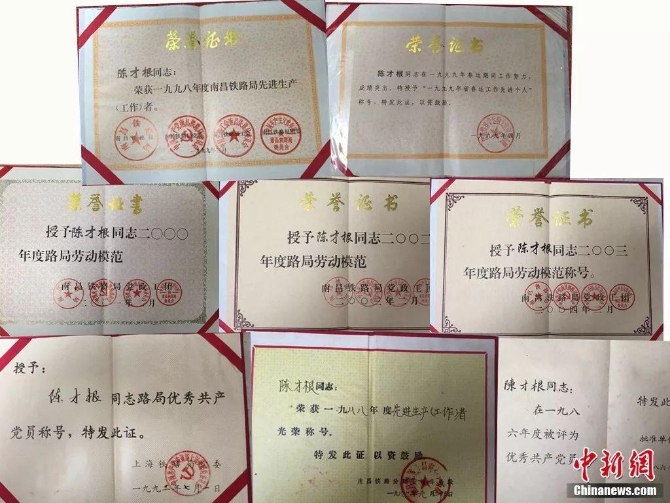 荣誉证书
陈才根同志:
荣获一九九八年度南昌铁路局先进生产
(工作)者。
荣誉证书
陈才根同志在一九九九年春运期间工作努力,
业绩突出,特授予“一九九九年省春运工作先进个人”
称号,特发此证,以资鼓励。
荣誉证书
授予陈才根同志二〇〇〇
年度路局劳动模范
南昌铁路局党政工团
荣誉证书
授予陈才根同志二〇〇二
年度路局劳动模范
南昌铁路局党政工团
荣誉证书
授予陈才根同志二〇〇三
年度路局劳动模范称号。
南昌铁路局党政工团
二〇〇四年 月
授予:
陈才根同志路局优秀共产
党员称号,特发此证。
上海铁路局 委
一九九二年七月 日
陈才根同志:
荣获一九八八年度先进生产(工作)者
光荣称号。
特发此证以资鼓励
陈才根同志:
在一九八
六年度被评为
优秀共产党员
特发此
批准单位
中新网
CHINANEWS.COM